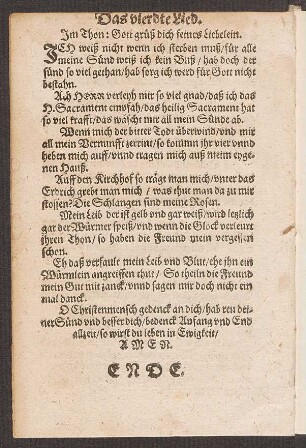 Das vierdte Lied.
Im Thon: Gott grüß dich feines Liebelein.
ICH weiß nicht wenn ich sterben muß/ für alle
meine Sünd weiß ich kein Buß/ hab doch der
sünd so viel gethan/ hab sorg ich werd für Gott nicht
bestahn.
Ach HERR verleyh mir so viel gnad/ daß ich das
H. Sacrament empfah/ das heilig Sacrament hat
so viel krafft/ das wäscht mir all mein Sünde ab.
Wenn mich der bitter Todt überwind/ vnd mir
all mein Vernunfft zerrint/ so kommn jhr vier vnnd
heben mich auff/ vnnd tragen mich auß meim eyge-
nen Hauß.
Auff den Kirchhof so trägt man mich/ vnter das
Erdrich grebt man mich / was thut man da zu mir
stossen? Die Schlangen sind meine Rosen.
Mein Leib der ist gelb vnd gar weiß/ wird letzlich
gar der Würmer speiß/ vnd wenn die Glock verleurt
jhren Thon/ so haben die Freund mein vergessen
schon.
Eh daß verfaule mein Leib vnd Blut/ ehe jhn ein
Würmlein angreiffen thut/ So theiln die Freund
mein Gut mit zanck/ vnnd sagen mir doch nicht ein
mal danck.
O Christenmensch gedenck an dich/ hab reu dei-
ner Sünd vnd besser dich/ bedenck Anfang vnd End
allzeit/ so wirst du leben in Ewigkeit/
AMEN.
ENDE.